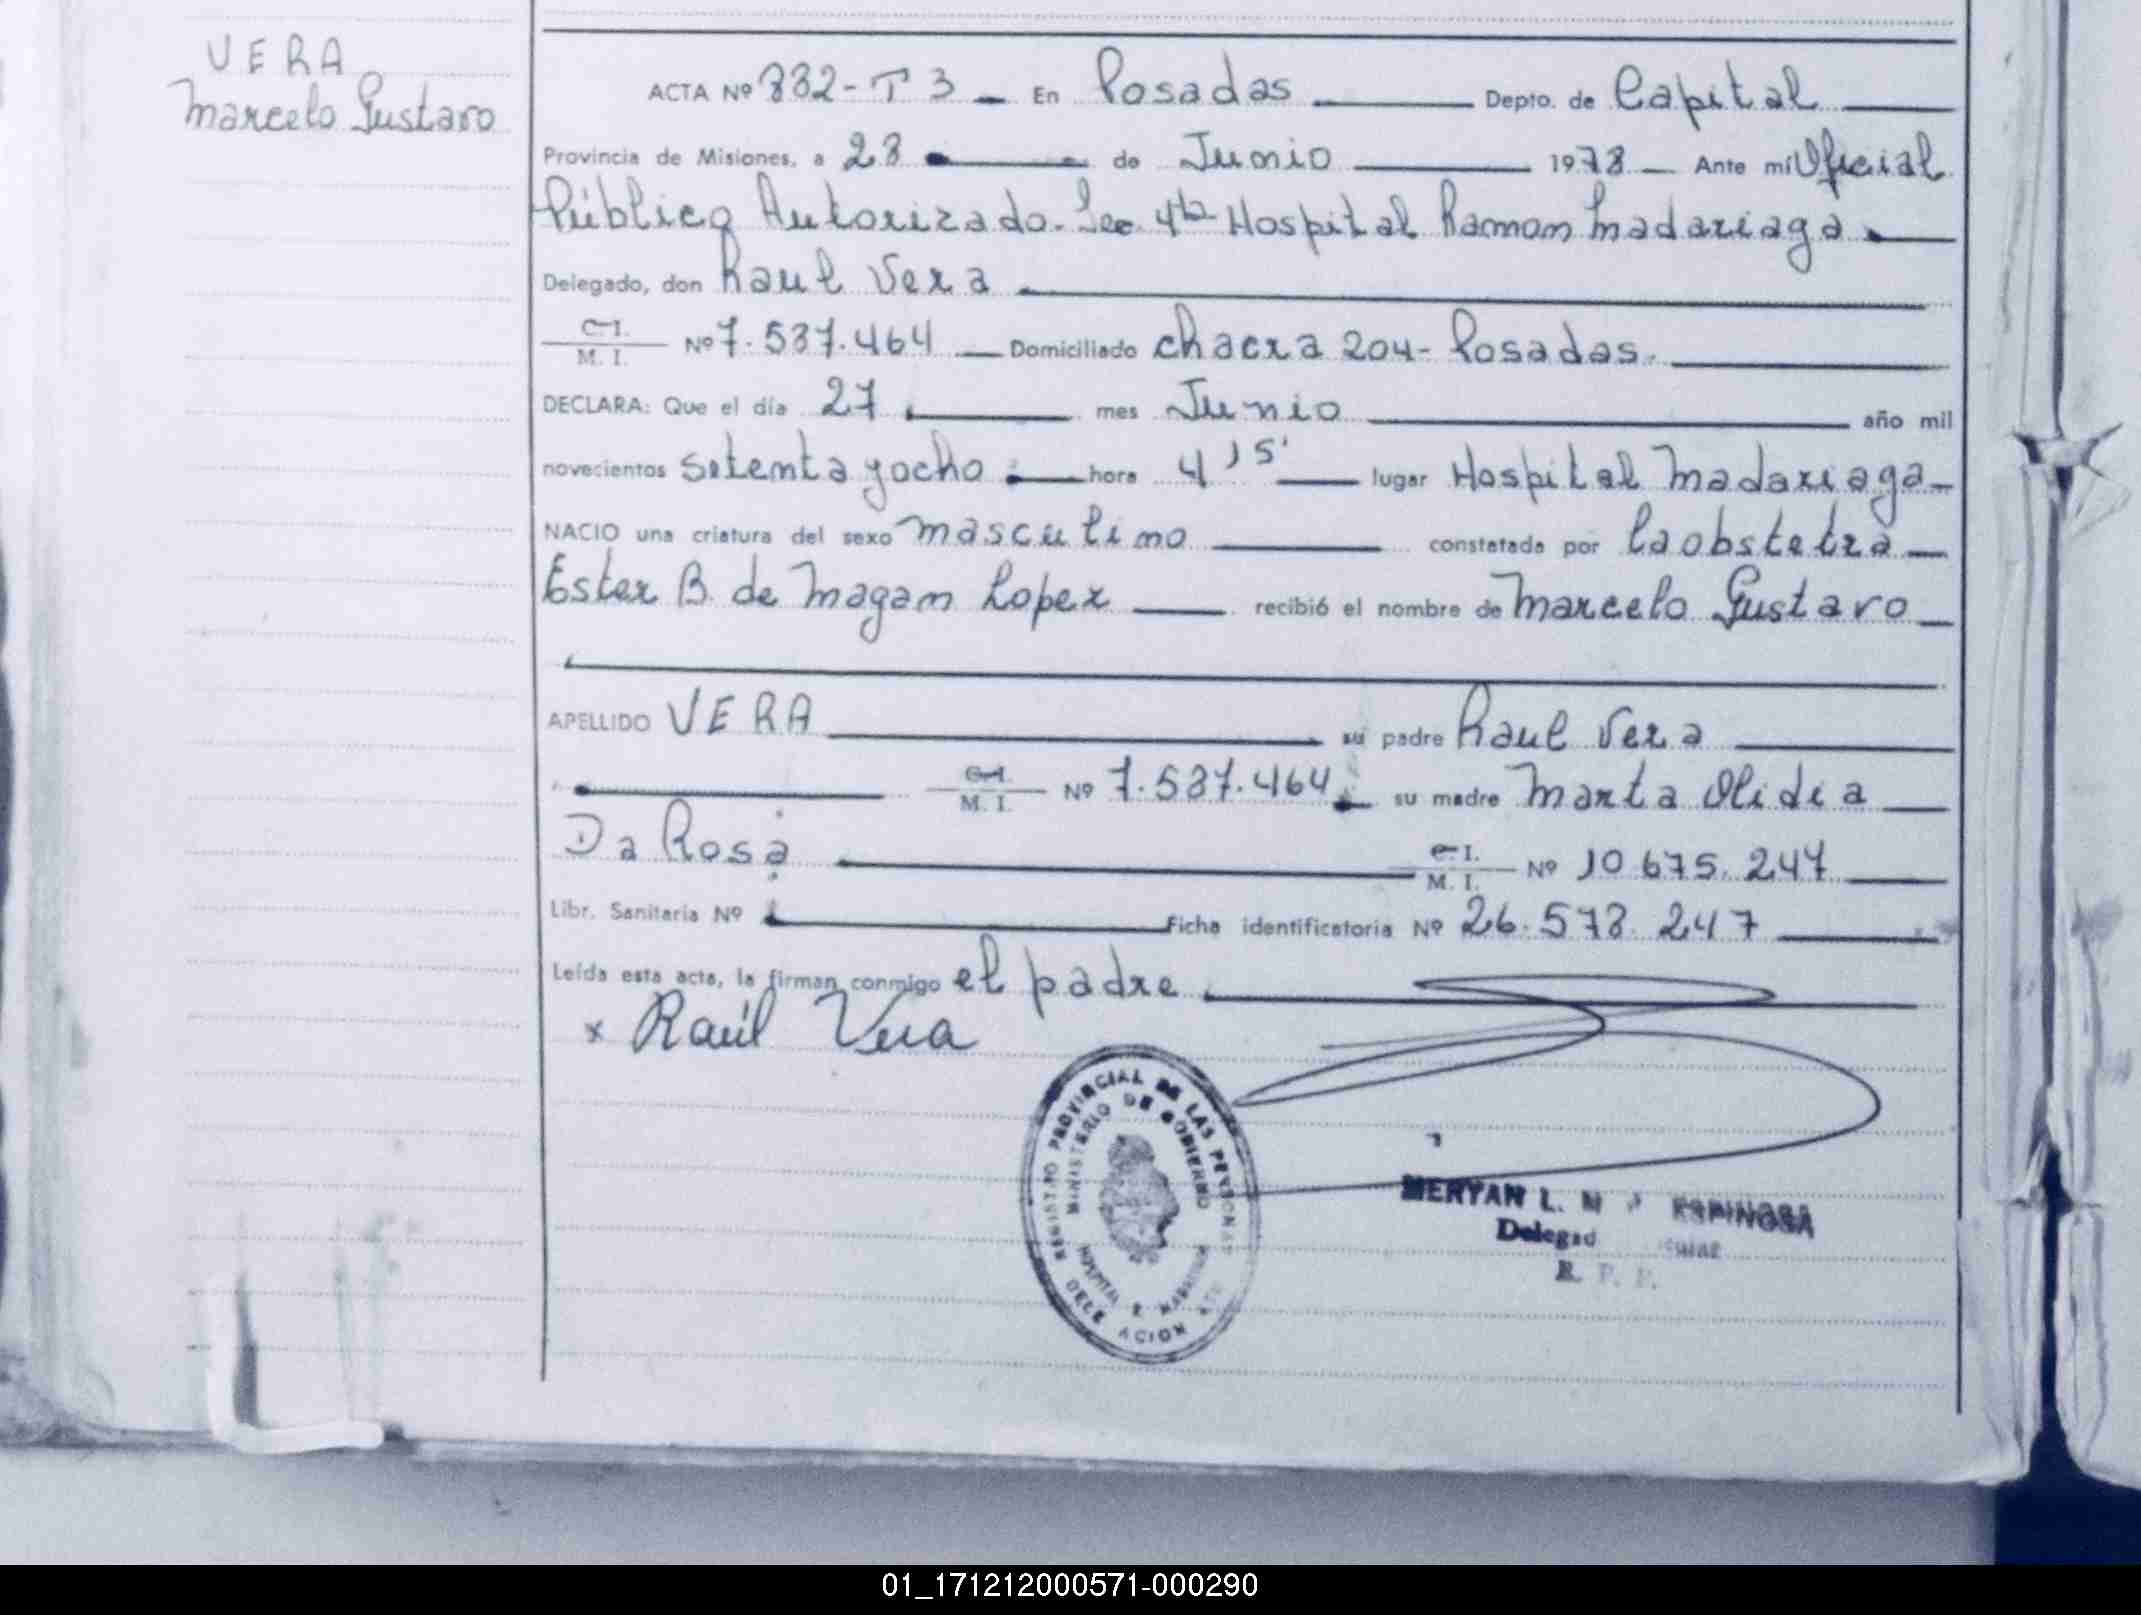 VERA
Marcelo Gustavo
ACTA Nº 832-T 3 En Posadas Depto. de Capital
Provincia de Misiones, a 28 de Junio 1978 Ante mí Oficial
Público Autorizado. Sec. 4ta Hospital Ramon Madariaga
Delegado, don Raul Vera
C.I.
M. I. Nº 7.537.464 Domiciliado chacra 204 - Posadas.
DECLARA: Que el día 27 mes Junio año mil
novecientos setenta y ocho hora 4 15' lugar Hospital Madariaga
NACIO una criatura del sexo masculino constatada por la obstetra
Ester B. de Magan Lopez recibió el nombre de Marcelo Gustavo
APELLIDO VERA su padre Raul Vera
C.I.
M. I. Nº 7.537.464 su madre Marta Olidia
Da Rosa C.I.
M. I. Nº 10 675.247
Libr. Sanitaria Nº Ficha identificatoria Nº 26.578.247
Leída esta acta, la firman conmigo el padre
x Raúl Vera
REGISTRO PROVINCIAL DE LAS PERSONAS
MINISTERIO DE GOBIERNO
HOSPITAL R MADARIAGA
DELEGACION
MERYAN L. ESPINOSA
R. P. P.
01_171212000571-000290